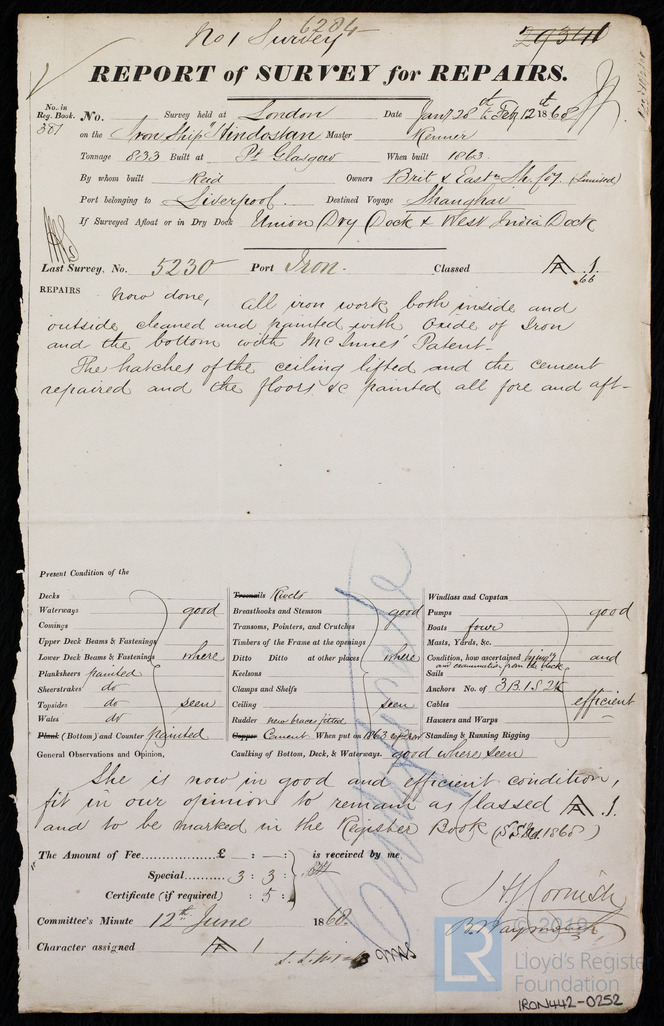 6284
No 1 Survey
29341
REPORT of SURVEY for REPAIRS.
No. in Reg. Book. 381 No. Survey held at London Date Jany 28th & Feb 12th 1868
on the Iron Ship "Hindostan" Master Renner
Tonnage 833 Built at Pt Glasgow When built 1863.
By whom built Reid Owners Brit & East'n Sh. Coy. (Limited)
Port belonging to Liverpool. Destined Voyage Shanghai
If Surveyed Afloat or in Dry Dock Union Dry Dock & West India Dock
Last Survey, No. 5230 Port Iron. Classed A 1.
66
REPAIRS Now done, All iron work both inside and
outside cleaned and painted with Oxide of Iron
and the bottom with McInnes' Patent-
The hatches of the ceiling lifted and the cement
repaired and the floors &c painted all fore and aft-
Present Condition of the
Decks
Waterways good
Comings
Upper Deck Beams & Fastenings
Lower Deck Beams & Fastenings where
Planksheers painted
Sheerstrakes do
Topsides do seen
Wales do
Plank (Bottom) and Counter painted
Treenails Rivets
Breasthooks and Stemson good
Transoms, Pointers, and Crutches
Timbers of the Frame at the openings
Ditto Ditto at other places where
Keelsons
Clamps and Shelfs
Ceiling seen
Rudder new braces fitted
Copper Cement When put on 1863
Windlass and Capstan
Pumps good
Boats four
Masts, Yards, &c.
Condition, how ascertained
and examination from the deck and
Sails
Anchors No. of 3 B. 1 S. 2 K
Cables efficient
Hawsers and Warps
Standing & Running Rigging
General Observations and Opinion, Caulking of Bottom, Deck, & Waterways. good where seen
She is now in good and efficient condition,
fit in our opinion to remain as classed A 1.
and to be marked in the Register Book (S.S. 1868)
The Amount of Fee............... £ — : — : is received by me,
Special............ 3 : 3 :
Certificate (if required) : 5 :
J H Cornish
Committee's Minute 12th June 1868.
B. Waymouth
Character assigned A 1
© 2019
LR
Lloyd's Register
Foundation
IRON442-0252